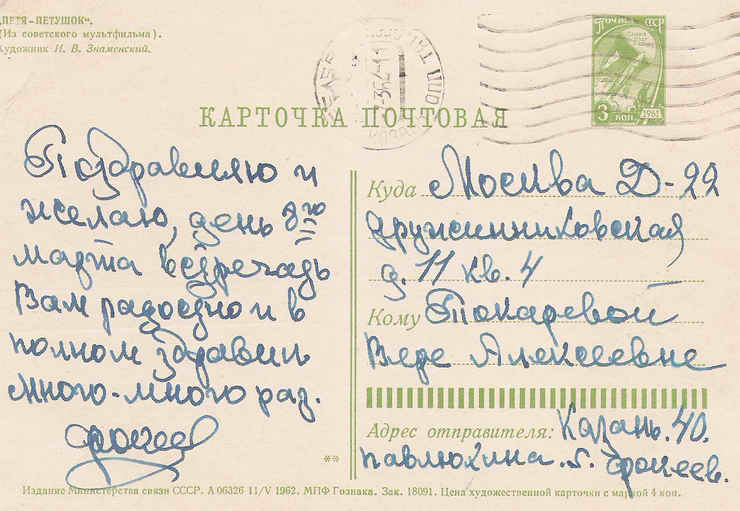 „ПЕТЯ-ПЕТУШОК“.
(Из советского мультфильма).
Художник И. В. Знаменский.
ПОЧТА СССР
3 коп. 1961
КАРТОЧКА ПОЧТОВАЯ
Поздравляю и
желаю, день 8го
марта встречать
Вам радостно и в
полном здравии
много-много раз.
Фокеев
Куда Москва Д-22
дружинниковская
д. 11 кв. 4
Кому Токаревой
Вере Алексеевне
Адрес отправителя: Казань. 40.
Павлюхина. 5. Фокеев.
**
Издание Министерства связи СССР. А 06326 11/V 1962. МПФ Гознака. Зак. 18091. Цена художественной карточки с маркой 4 коп.